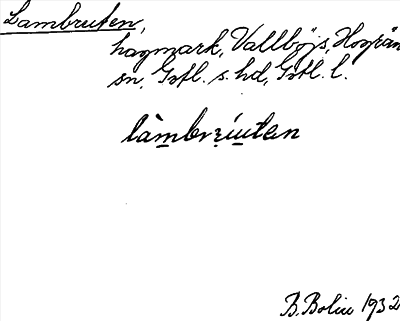 Lambruten,
hagmark, Vallbys, Hogrän
sn, Gotl. s. hd, Gotl. l.
làmbrúten
B. Bolin 1932